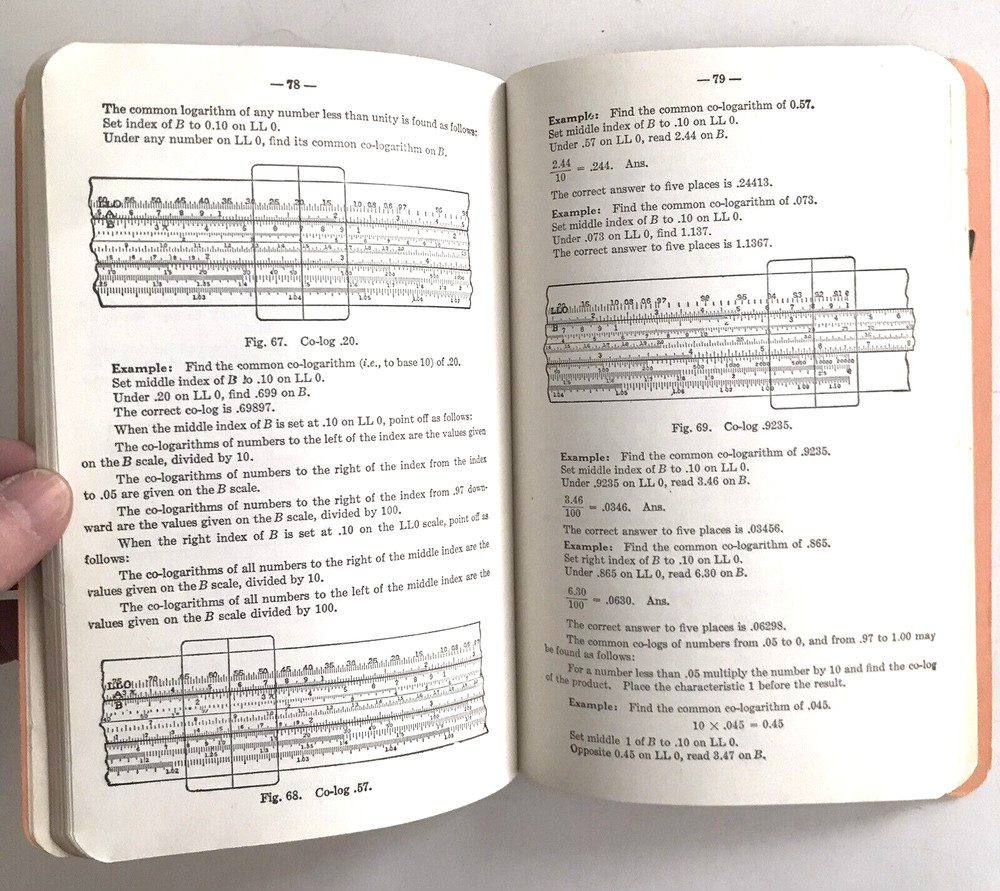 — 78 —
The common logarithm of any number less than unity is found as follows:
Set index of B to 0.10 on LL 0.
Under any number on LL 0, find its common co-logarithm on B.
Fig. 67. Co-log .20.
Example: Find the common co-logarithm (i.e., to base 10) of .20.
Set middle index of B to .10 on LL 0.
Under .20 on LL 0, find .699 on B.
The correct co-log is .69897.
When the middle index of B is set at .10 on LL 0, point off as follows:
The co-logarithms of numbers to the left of the index are the values given
on the B scale, divided by 10.
The co-logarithms of numbers to the right of the index from the index
to .05 are given on the B scale.
The co-logarithms of numbers to the right of the index from .97 down-
ward are the values given on the B scale, divided by 100.
When the right index of B is set at .10 on the LL0 scale, point off as
follows:
The co-logarithms of all numbers to the right of the middle index are the
values given on the B scale, divided by 10.
The co-logarithms of all numbers to the left of the middle index are the
values given on the B scale divided by 100.
Fig. 68. Co-log .57.
— 79 —
Example: Find the common co-logarithm of 0.57.
Set middle index of B to .10 on LL 0.
Under .57 on LL 0, read 2.44 on B.
2.44
10
= .244. Ans.
The correct answer to five places is .24413.
Example: Find the common co-logarithm of .073.
Set middle index of B to .10 on LL 0.
Under .073 on LL 0, find 1.137.
The correct answer to five places is 1.1367.
Fig. 69. Co-log .9235.
Example: Find the common co-logarithm of .9235.
Set middle index of B to .10 on LL 0.
Under .9235 on LL 0, read 3.46 on B.
3.46
100
= .0346. Ans.
The correct answer to five places is .03456.
Example: Find the common co-logarithm of .865.
Set right index of B to .10 on LL 0.
Under .865 on LL 0, read 6.30 on B.
6.30
100
= .0630. Ans.
The correct answer to five places is .06298.
The common co-logs of numbers from .05 to 0, and from .97 to 1.00 may
be found as follows:
For a number less than .05 multiply the number by 10 and find the co-log
of the product. Place the characteristic 1 before the result.
Example: Find the common co-logarithm of .045.
10 × .045 = 0.45
Set middle 1 of B to .10 on LL 0.
Opposite 0.45 on LL 0, read 3.47 on B.